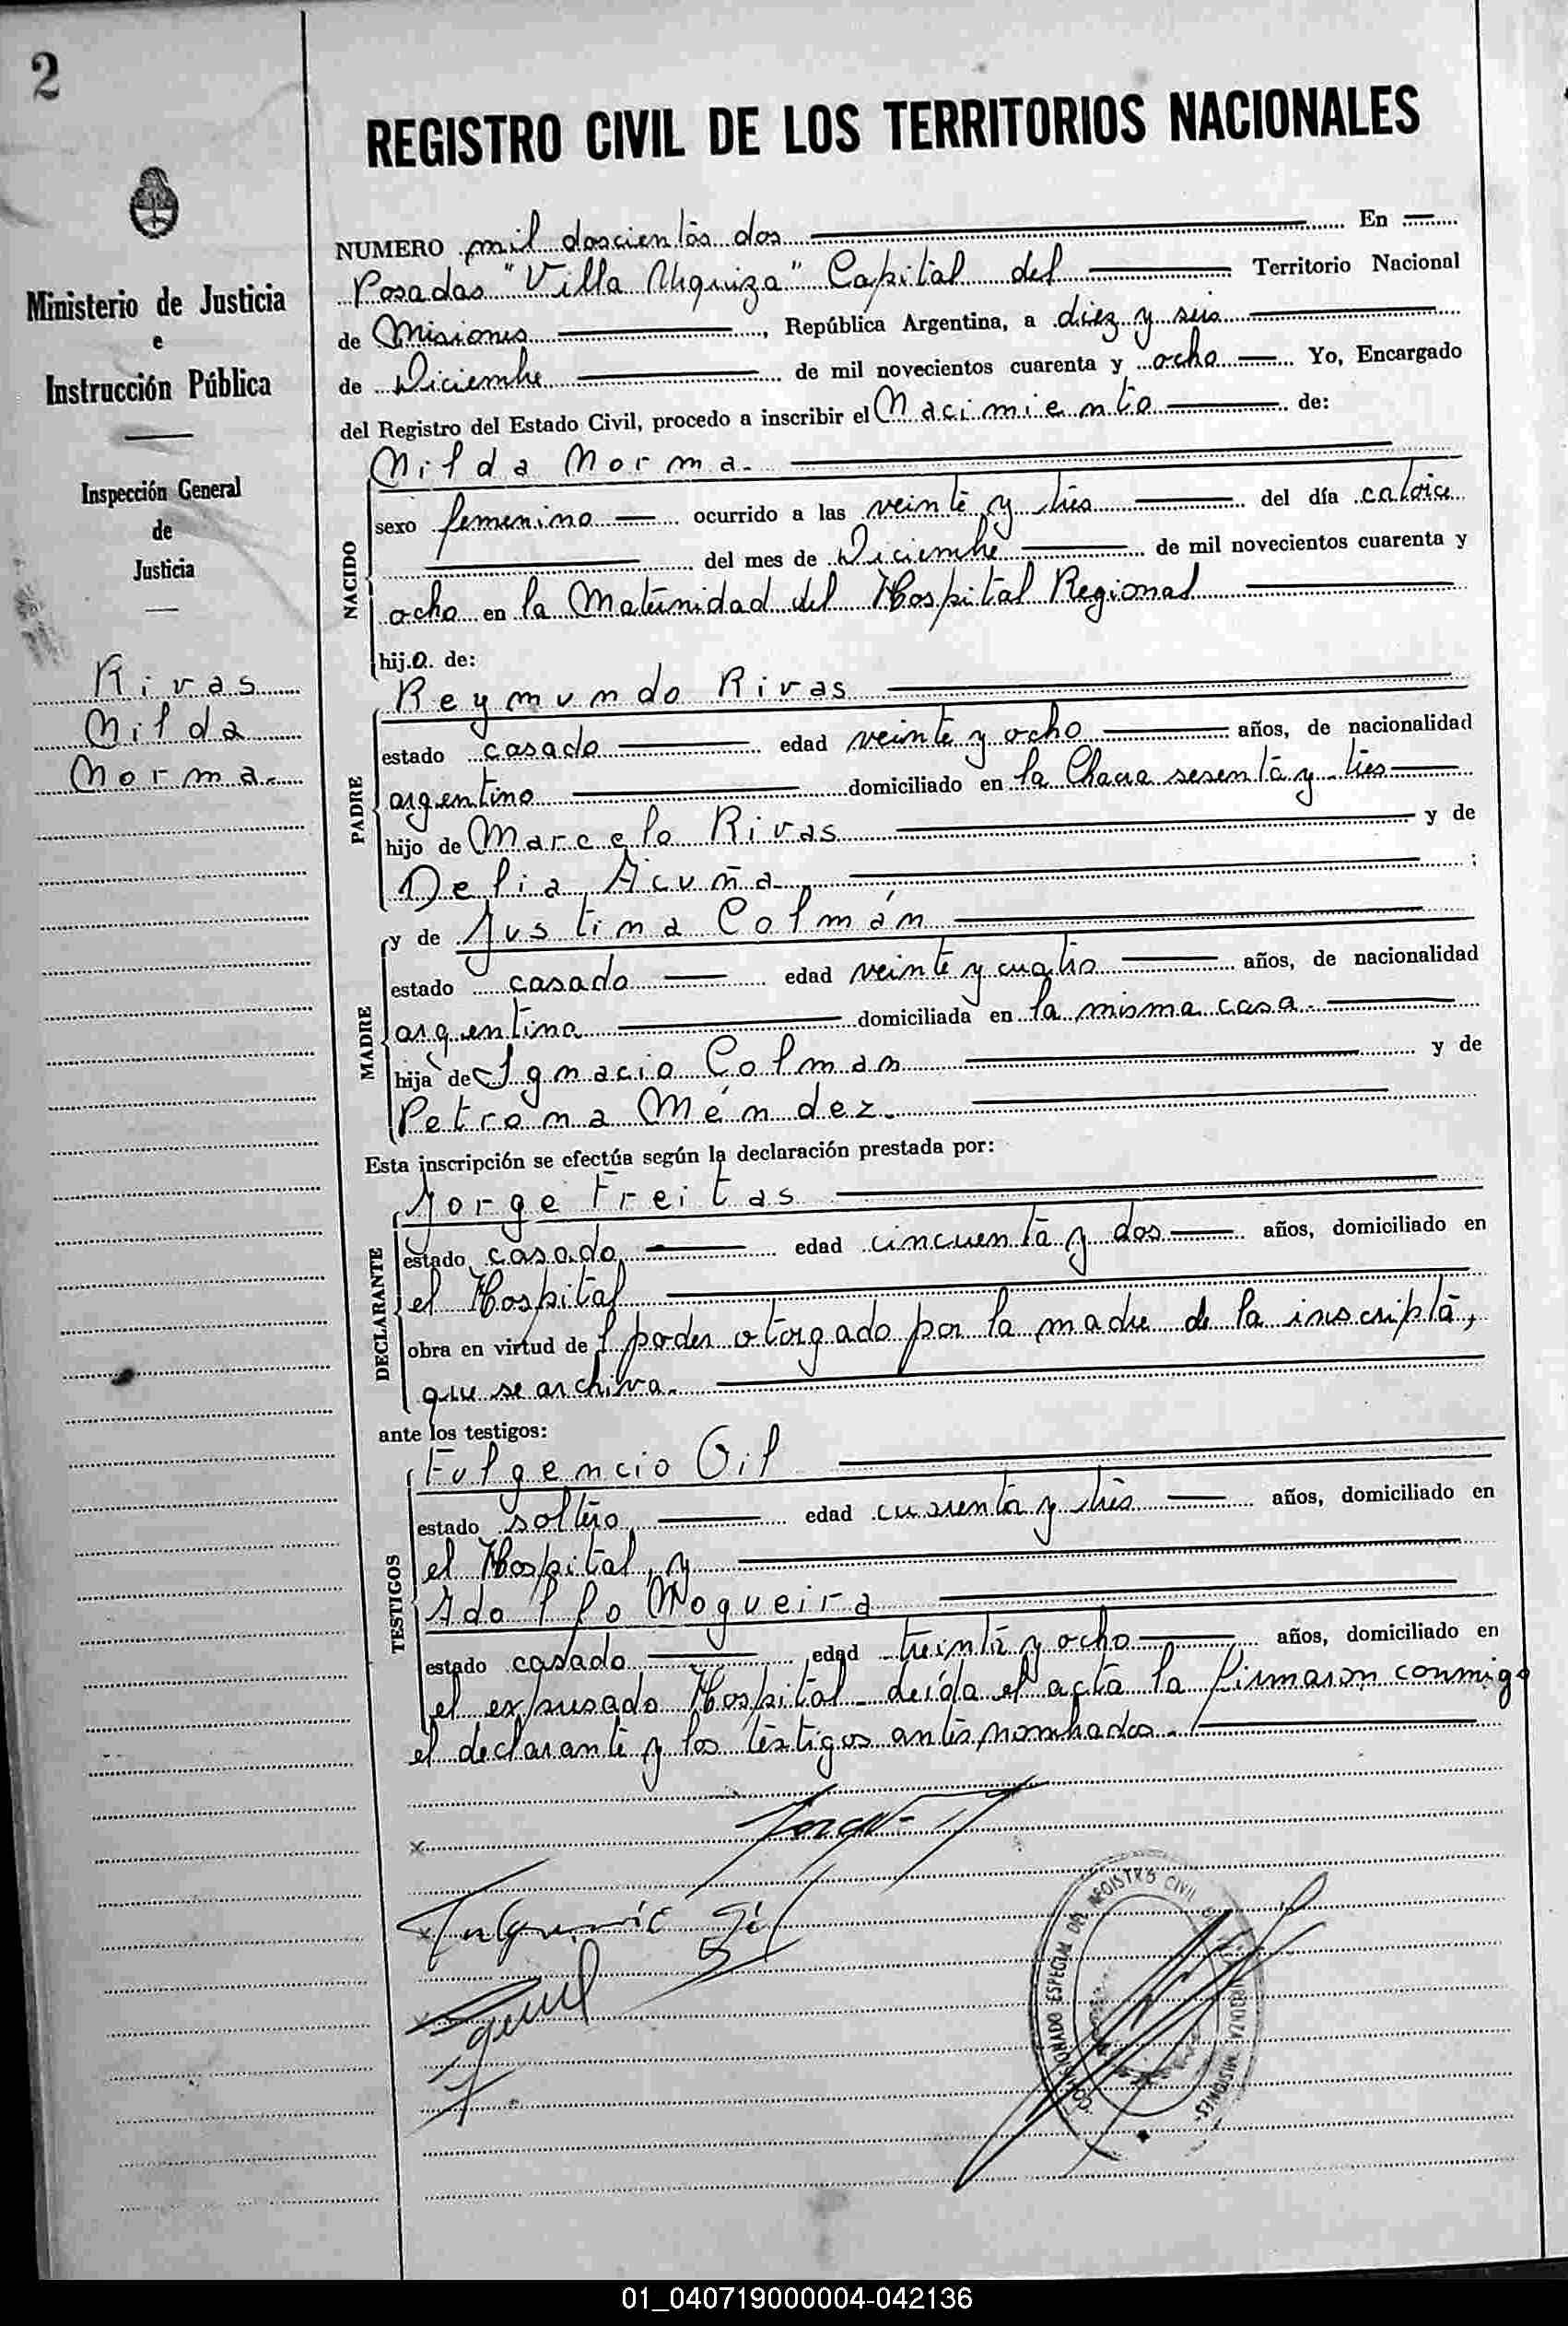 2
Ministerio de Justicia
e
Instrucción Pública
Inspección General
de
Justicia
Rivas
Nilda
Norma.
REGISTRO CIVIL DE LOS TERRITORIOS NACIONALES
NUMERO mil doscientos dos En
Posadas "Villa Urquiza" Capital del Territorio Nacional
de Misiones, República Argentina, a diez y seis
de Diciembre de mil novecientos cuarenta y ocho Yo, Encargado
del Registro del Estado Civil, procedo a inscribir el Nacimiento de:
NACIDO
Nilda Norma.
sexo femenino ocurrido a las veinte y tres del día catorce
del mes de Diciembre de mil novecientos cuarenta y
ocho en la Maternidad del Hospital Regional
hija de:
PADRE
Reymundo Rivas
estado casado edad veinte y ocho años, de nacionalidad
argentino domiciliado en la Chacra sesenta y tres
hijo de Marcelo Rivas y de
Delia Acuña ;
MADRE
y de Justina Colmán
estado casada edad veinte y cuatro años, de nacionalidad
argentina domiciliada en la misma casa.
hija de Ignacio Colman y de
Petrona Méndez.
Esta inscripción se efectúa según la declaración prestada por:
DECLARANTE
Jorge Freitas
estado casado edad cincuenta y dos años, domiciliado en
el Hospital
obra en virtud del poder otorgado por la madre de la inscripta,
que se archiva.
ante los testigos:
TESTIGOS
Fulgencio Gil
estado soltero, edad cuarenta y tres años, domiciliado en
el Hospital, y
Adolfo Nogueira
estado casado edad treinta y ocho años, domiciliado en
el expresado Hospital - Leída el acta la firmaron conmigo
el declarante y los testigos antes nombrados.
Fulgencio Gil
COMISIONADO ESPECIAL DEL REGISTRO CIVIL VILLA URQUIZA MISIONES
01_040719000004-042136